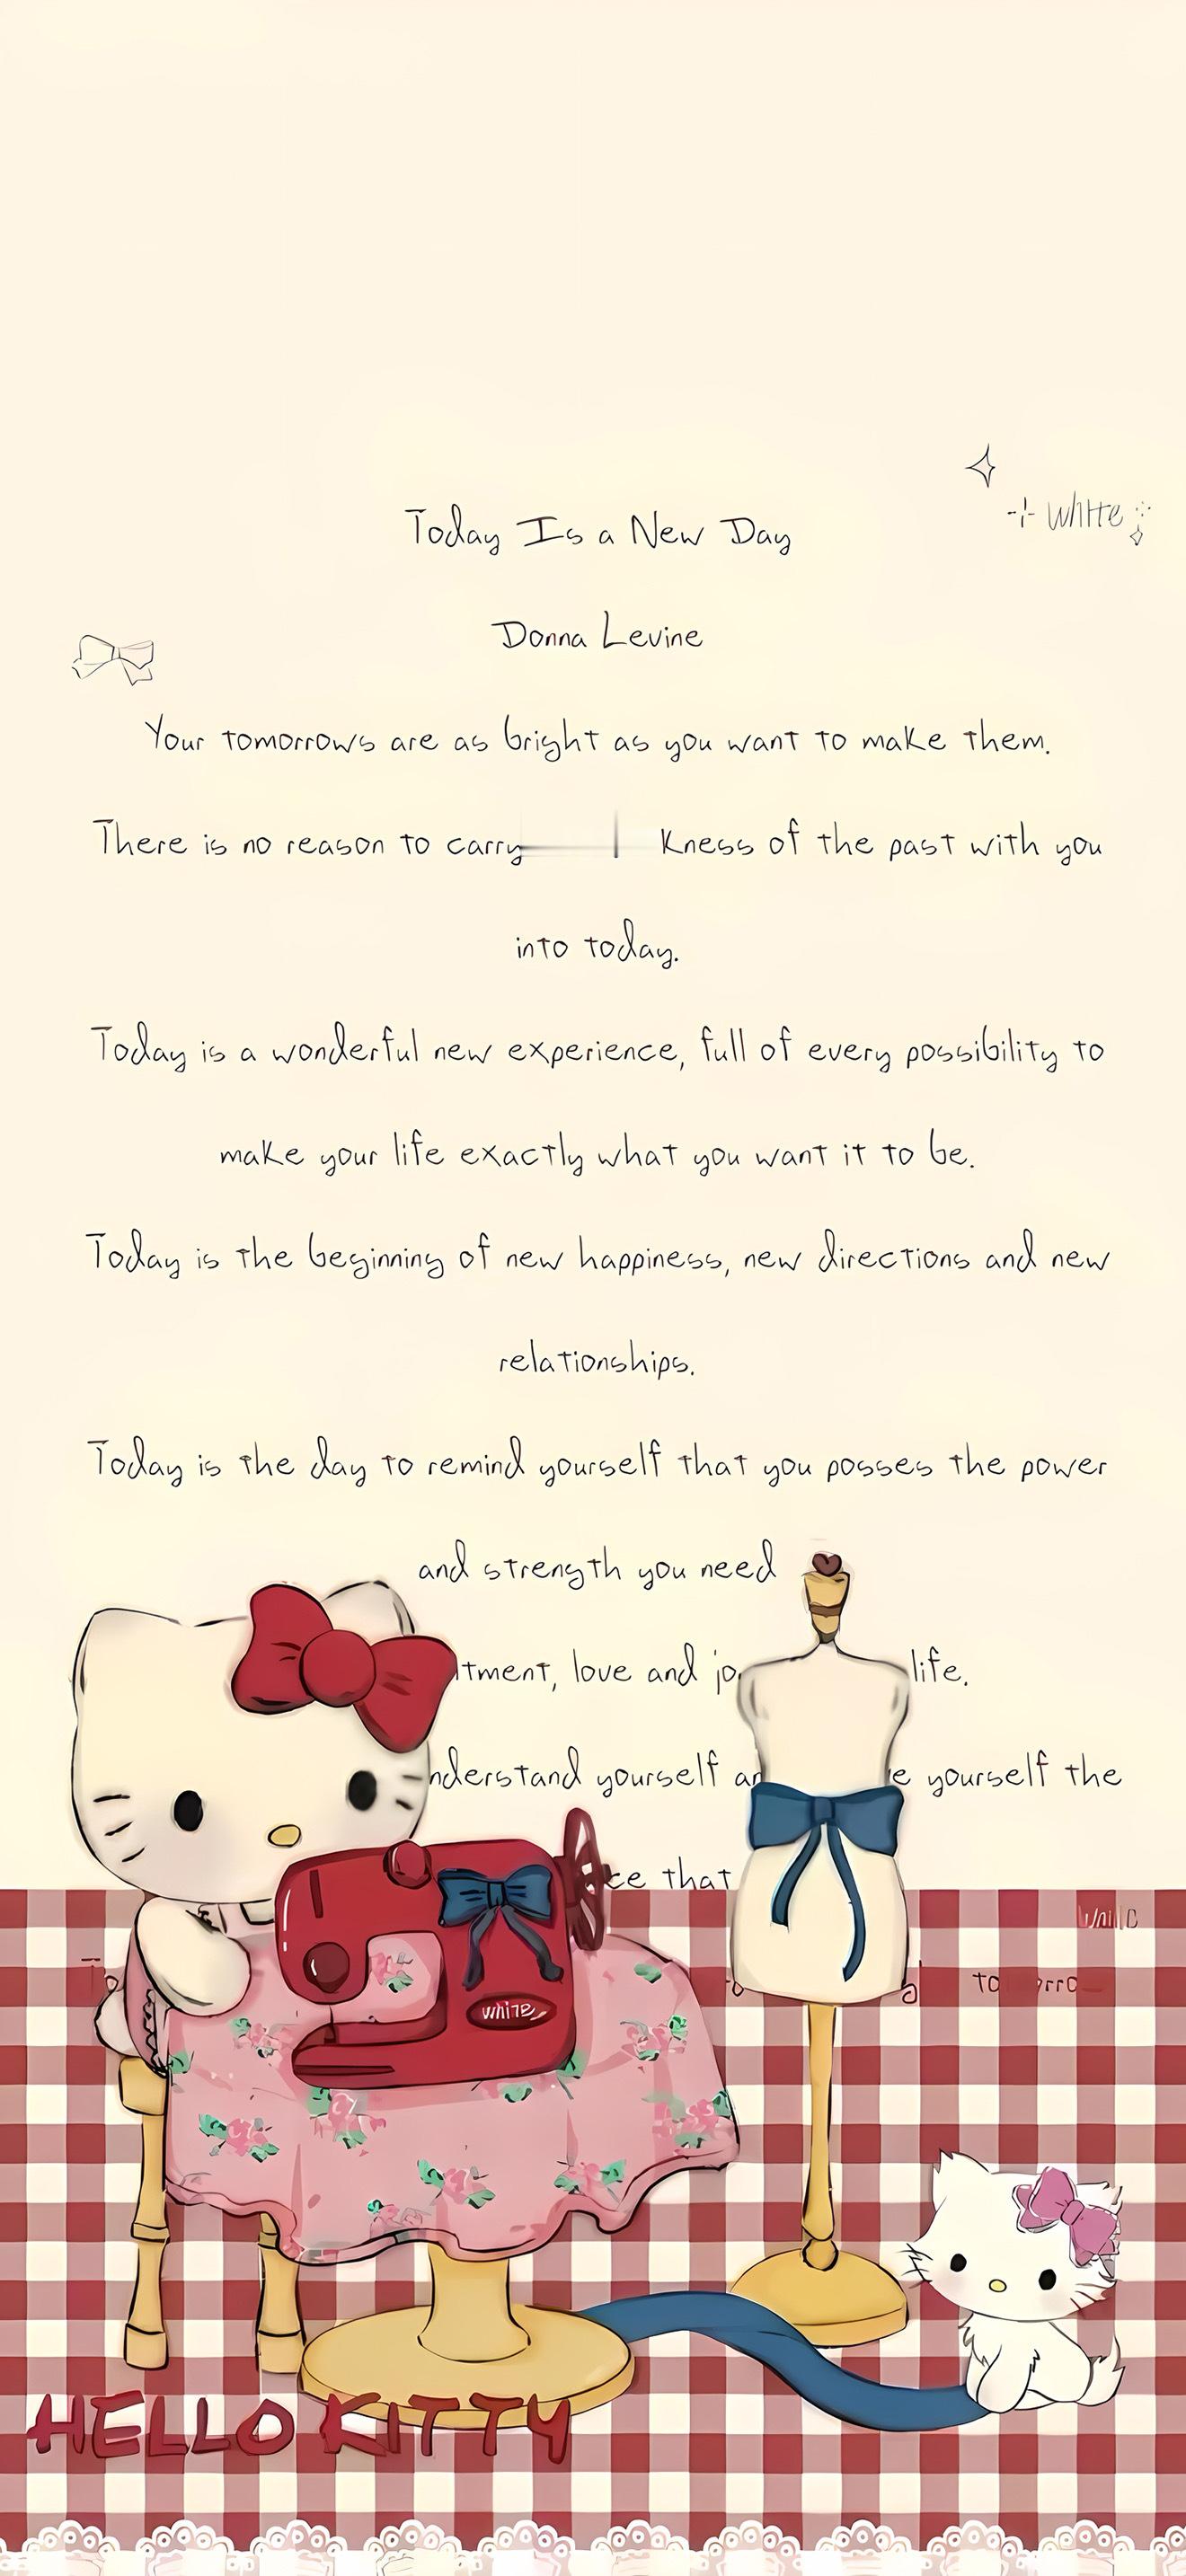 white
Today Is a New Day
Donna Levine
Your tomorrows are as bright as you want to make them.
There is no reason to carry kness of the past with you
into today.
Today is a wonderful new experience, full of every possibility to
make your life exactly what you want it to be.
Today is the beginning of new happiness, new directions and new
relationships.
Today is the day to remind yourself that you posses the power
and strength you need
tment, love and jo life.
nderstand yourself an e yourself the
ce that
white
HELLO KITTY